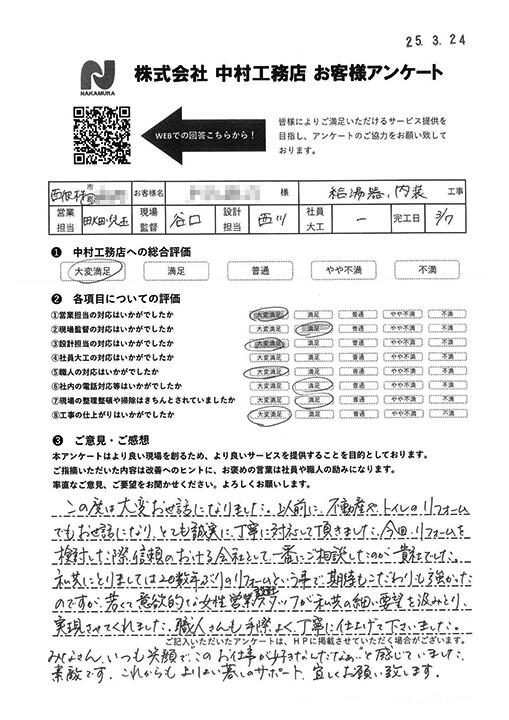 25.3.24
NAKAMURA
株式会社 中村工務店 お客様アンケート
WEBでの回答こちらから!
皆様によりご満足いただけるサービス提供を
目指し、アンケートのご協力をお願い致して
おります。
市 お客様名 様 給湯器、内装 工事
営業担当 現場監督 谷口 設計担当 西川 社員大工 ー 完工日 3/7
❶ 中村工務店への総合評価
大変満足 満足 普通 やや不満 不満
❷ 各項目についての評価
①営業担当の対応はいかがでしたか 大変満足 満足 普通 やや不満 不満
②現場監督の対応はいかがでしたか 大変満足 満足 普通 やや不満 不満
③設計担当の対応はいかがでしたか 大変満足 満足 普通 やや不満 不満
④社員大工の対応はいかがでしたか 大変満足 満足 普通 やや不満 不満
⑤職人の対応はいかがでしたか 大変満足 満足 普通 やや不満 不満
⑥社内の電話対応等はいかがでしたか 大変満足 満足 普通 やや不満 不満
⑦現場の整理整頓や掃除はきちんとされていましたか 大変満足 満足 普通 やや不満 不満
⑧工事の仕上がりはいかがでしたか 大変満足 満足 普通 やや不満 不満
❸ ご意見・ご感想
本アンケートはより良い現場を創るため、より良いサービスを提供することを目的としております。
ご指摘いただいた内容は改善へのヒントに、お褒めの言葉は社員や職人の励みになります。
率直なご意見、ご要望をお聞かせください。よろしくお願いします。
この度は大変お世話になりました。以前に、不動産や、トイレのリフォーム
でもお世話になり、とても誠実に、丁寧に対応して頂きました。今回、リフォームを
検討した際、信頼のおける会社として一番にご相談したのが貴社でした。
私共にとりましては20数年ぶりのリフォームという事で、期待もこだわりも強かった
のですが、若くて意欲的な女性営業スタッフが私共の細い要望を汲みとり、
実現させてくれました。職人さんも手際よく、丁寧に仕上げて下さいました。
ご記入いただいたアンケートは、HPに掲載させていただく場合がございます。
みなさん、いつも笑顔で、"このお仕事が好きなんだなぁ"と感じていました。
素敵です。これからもよりよい暮しのサポート、宜しくお願い致します。